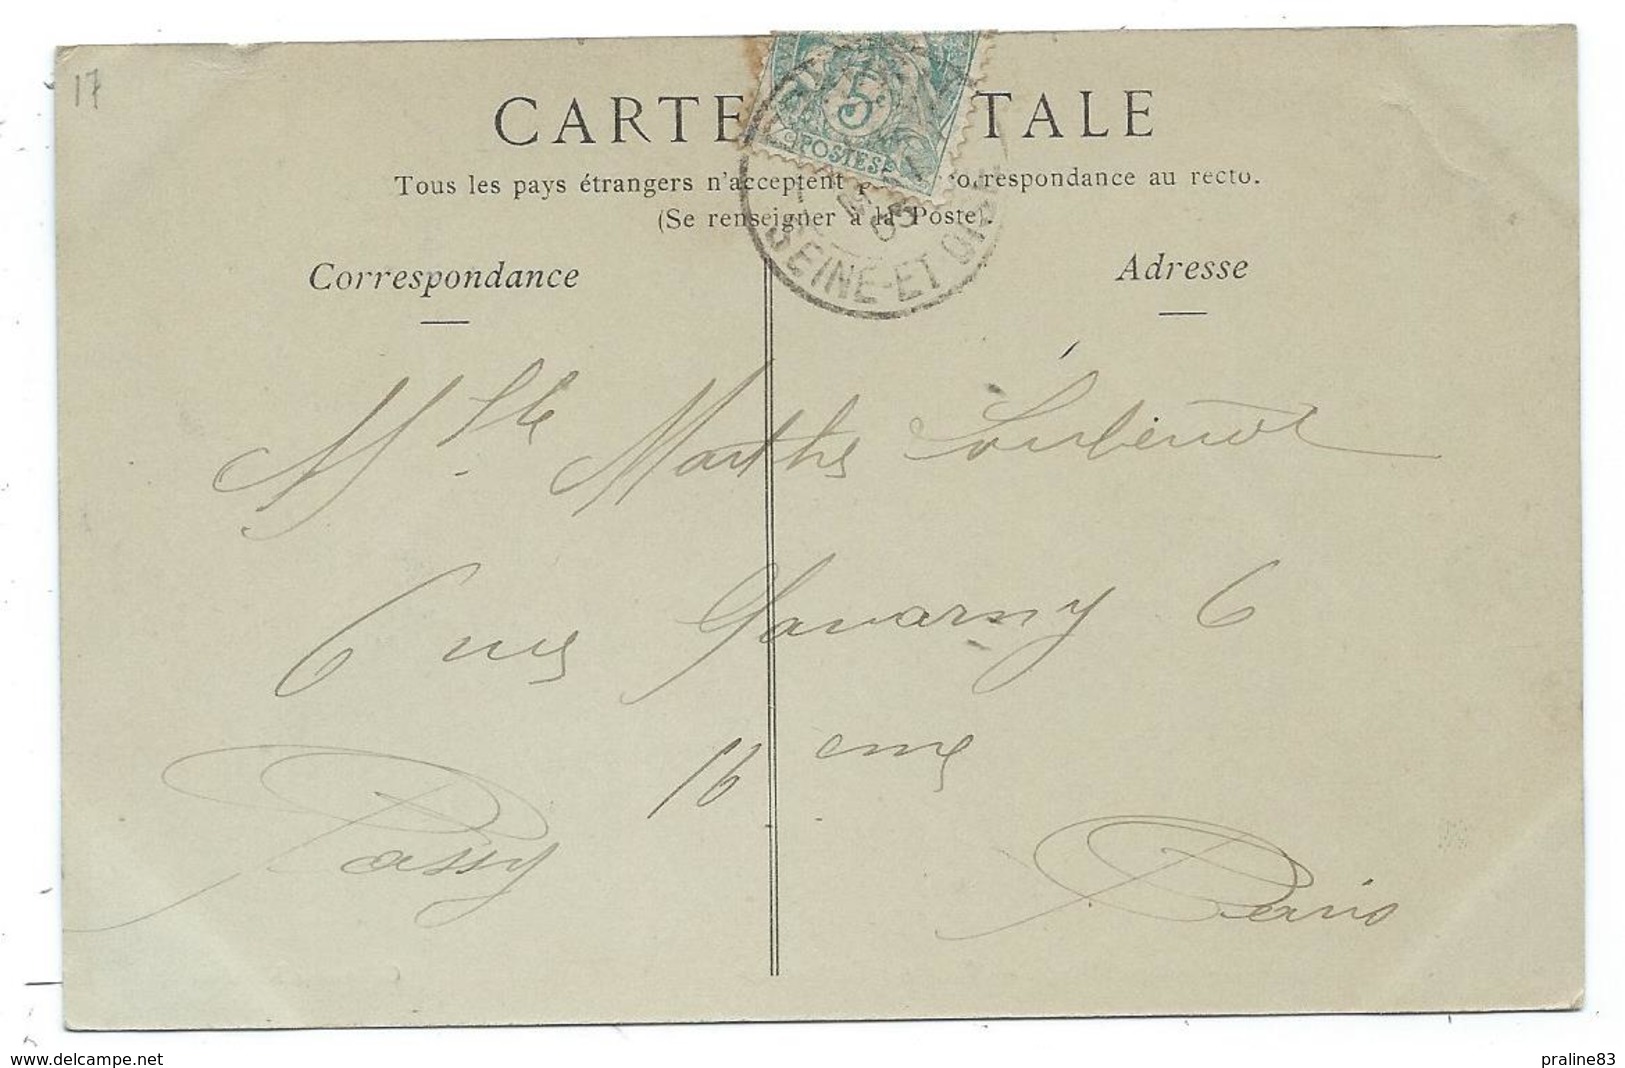 17
CARTE TALE
5
POSTES
Tous les pays étrangers n'acceptent correspondance au recto.
(Se renseigner à la Poste).
SEINE-ET
Correspondance
Adresse
Mlle Marthe
6 rue Gavarny 6
16 eme
Passy
Paris
www.delcampe.net
praline83